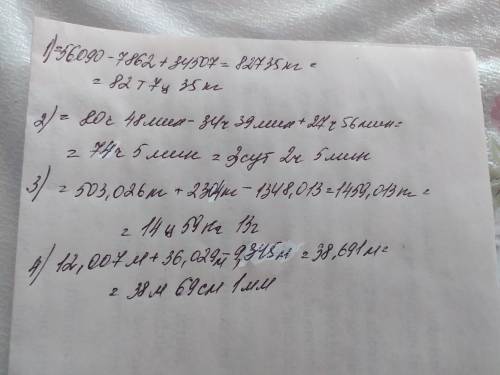 1) =56090-7862+34507=82735кг=
= 82т 7ц 35 кг
2) = 80ч 48мин - 34ч 39мин+27ч 56мин=
= 74ч 5мин = 3сут 2ч 5мин
3) =503,026кг + 2304кг - 1348,013=1459,013кг=
= 14ц 59кг 13г
4) 12,007м+36,029м-9,345м=38,691м=
= 38м 69см 1мм